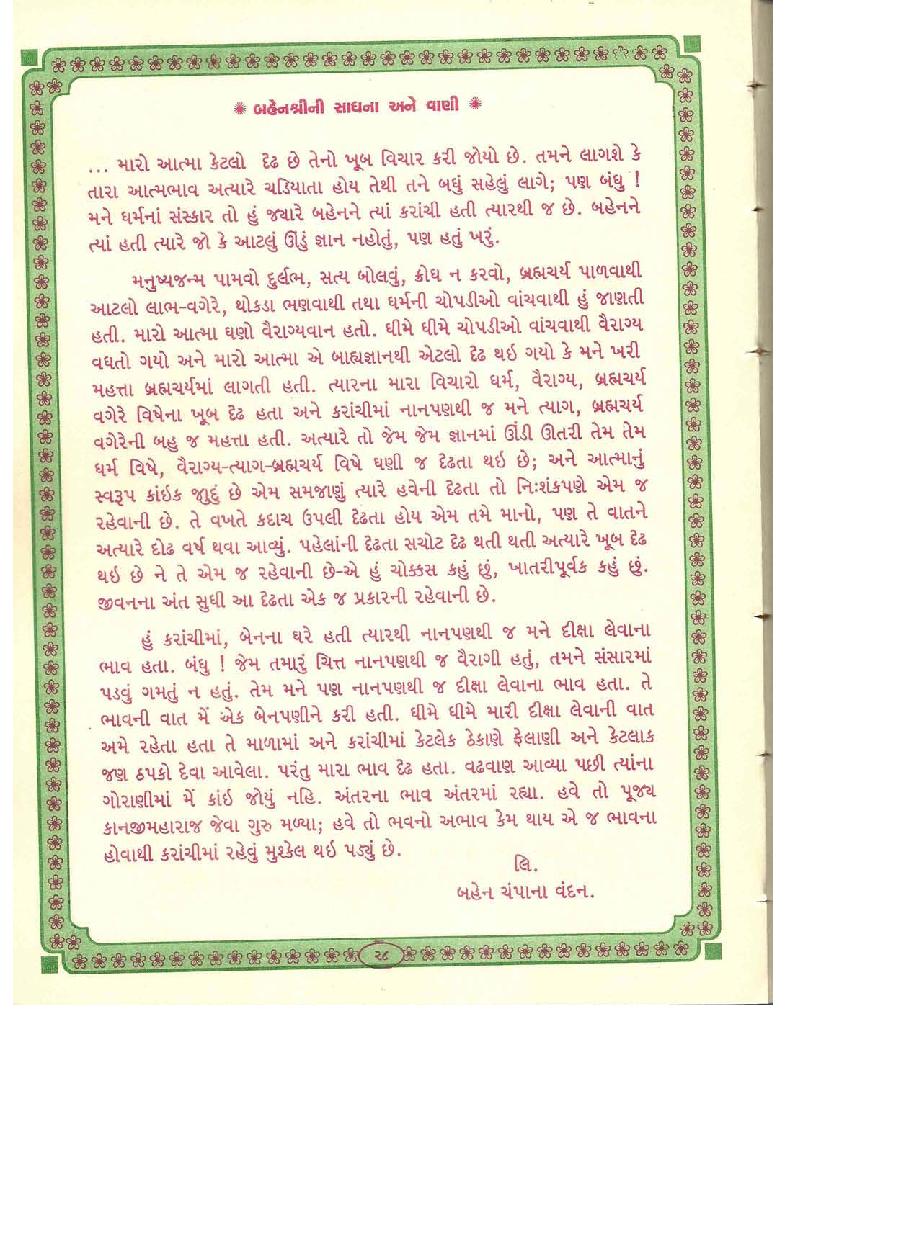 ❋ બહેનશ્રીની સાધના અને વાણી ❋
... મારો આત્મા કેટલો દેઢ છે તેનો ખૂબ વિચાર કરી જોયો છે. તમને લાગશે કે
તારા આત્મભાવ અત્યારે ચડિયાતા હોય તેથી તને બધું સહેલું લાગે; પણ બંધુ !
મને ધર્મનાં સંસ્કાર તો હું જ્યારે બહેનને ત્યાં કરાંચી હતી ત્યારથી જ છે. બહેનને
ત્યાં હતી ત્યારે જો કે આટલું ઊંડું જ્ઞાન નહોતું, પણ હતું ખરું.
મનુષ્યજન્મ પામવો દુર્લભ, સત્ય બોલવું, ક્રોધ ન કરવો, બ્રહ્મચર્ય પાળવાથી
આટલો લાભ-વગેરે, થોકડા ભણવાથી તથા ધર્મની ચોપડીઓ વાંચવાથી હું જાણતી
હતી. મારો આત્મા ઘણો વૈરાગ્યવાન હતો. ધીમે ધીમે ચોપડીઓ વાંચવાથી વૈરાગ્ય
વધતો ગયો અને મારો આત્મા એ બાહ્યજ્ઞાનથી એટલો દેઢ થઇ ગયો કે મને ખરી
મહત્તા બ્રહ્મચર્યમાં લાગતી હતી. ત્યારના મારા વિચારો ધર્મ, વૈરાગ્ય, બ્રહ્મચર્ય
વગેરે વિષેના ખૂબ દેઢ હતા અને કરાંચીમાં નાનપણથી જ મને ત્યાગ, બ્રહ્મચર્ય
વગેરેની બહુ જ મહત્તા હતી. અત્યારે તો જેમ જેમ જ્ઞાનમાં ઊંડી ઊતરી તેમ તેમ
ધર્મ વિષે, વૈરાગ્ય-ત્યાગ-બ્રહ્મચર્ય વિષે ઘણી જ દેઢતા થઇ છે; અને આત્માનું
સ્વરૂપ કાંઇક જુદું છે એમ સમજાણું ત્યારે હવેની દેઢતા તો નિઃશંકપણે એમ જ
રહેવાની છે. તે વખતે કદાચ ઉપલી દેઢતા હોય એમ તમે માનો, પણ તે વાતને
અત્યારે દોઢ વર્ષ થવા આવ્યું. પહેલાંની દેઢતા સચોટ દેઢ થતી થતી અત્યારે ખૂબ દેઢ
થઇ છે ને તે એમ જ રહેવાની છે-એ હું ચોક્કસ કહું છું, ખાતરીપૂર્વક કહું છું.
જીવનના અંત સુધી આ દેઢતા એક જ પ્રકારની રહેવાની છે.
હું કરાંચીમાં, બેનના ઘરે હતી ત્યારથી નાનપણથી જ મને દીક્ષા લેવાના
ભાવ હતા. બંધુ ! જેમ તમારું ચિત્ત નાનપણથી જ વૈરાગી હતું, તમને સંસારમાં
પડવું ગમતું ન હતું. તેમ મને પણ નાનપણથી જ દીક્ષા લેવાના ભાવ હતા. તે
ભાવની વાત મેં એક બેનપણીને કરી હતી. ધીમે ધીમે મારી દીક્ષા લેવાની વાત
અમે રહેતા હતા તે માળામાં અને કરાંચીમાં કેટલેક ઠેકાણે ફેલાણી અને કેટલાક
જણ ઠપકો દેવા આવેલા. પરંતુ મારા ભાવ દેઢ હતા. વઢવાણ આવ્યા પછી ત્યાંના
ગોરાણીમાં મેં કાંઇ જોયું નહિ. અંતરના ભાવ અંતરમાં રહ્યા. હવે તો પૂજ્ય
કાનજીમહારાજ જેવા ગુરુ મળ્યા; હવે તો ભવનો અભાવ કેમ થાય એ જ ભાવના
હોવાથી કરાંચીમાં રહેવું મુશ્કેલ થઇ પડ્યું છે.
લિ.
બહેન ચંપાના વંદન.
૨૮